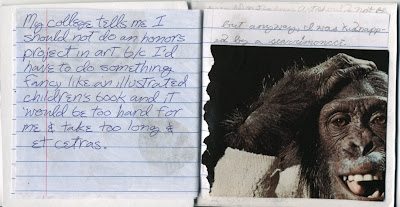 My college tells me I
should not do an honors
project in art b/c I'd
have to do something
fancy like an illustrated
children's book and it
would be too hard for
me & take too long &
et cetras.
But anyway, I was kidnapp-
ed by a